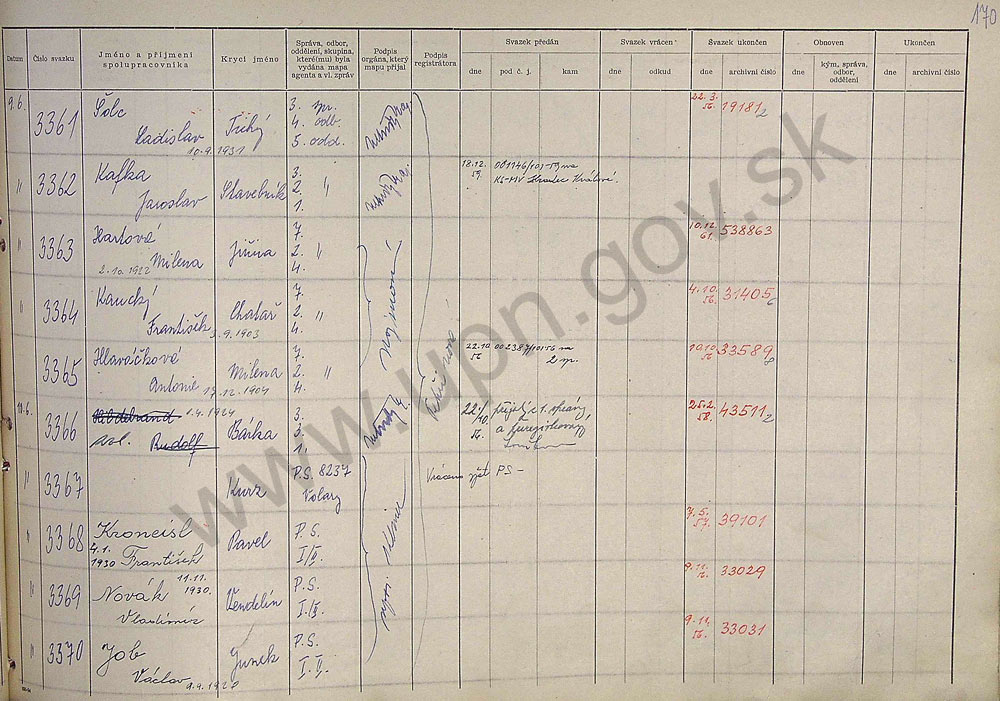 170
Datum
Číslo svazku
Jméno a příjmení spolupracovníka
Krycí jméno
Správa, odbor, oddělení, skupina, které(mu) byla vydána mapa agenta a vl. zpráv
Podpis orgána, který mapu přijal
Podpis registrátora
Svazek předán
dne
pod č. j.
kam
Svazek vrácen
dne
odkud
Svazek ukončen
dne
archivní číslo
Obnoven
dne
kým, správa, odbor, oddělení
Ukončen
dne
archivní číslo
9.6. 3361 Šolc Tichý 3. spr. 22.3. 19181/2
Ladislav 4. odb. 56.
10.9.1931 5. odd.
" 3362 Kafka Stavebník 3. 18.12. 001146/101-59 na
Jaroslav 2. " 59. KS-MV Hradec Králové.
1.
" 3363 Hartová Jiřina 7. 10.12. 538863
2.10.1922 Milena 2. " 61.
4.
" 3364 Kaucký Chatař 7. 4.10. 31405
František 2. " 56.
3.9.1903 4.
3365 Hlaváčková Milena 7. 22.10. na 33589
Antonie 2. " 56 2 sp. 56
12.1904 4.
10.6. 3366 1.4.1924 Bárka 3. 43511/2
Rudolf 3. 56. a 58.
1.
" 3367 Kurz P.S. 8237 Vráceno zpět PS -
Volary
" 3368 Kroneisl Pavel P.S. 7.5. 39101
4.1. 57.
1930 František
" 3369 Novák 11.11. Vendelín P.S. 9.11. 33029
1930. 56.
Vladimír
" 3370 Job Junek P.S. 9.11. 33031
Václav 56.
www.upn.gov.sk